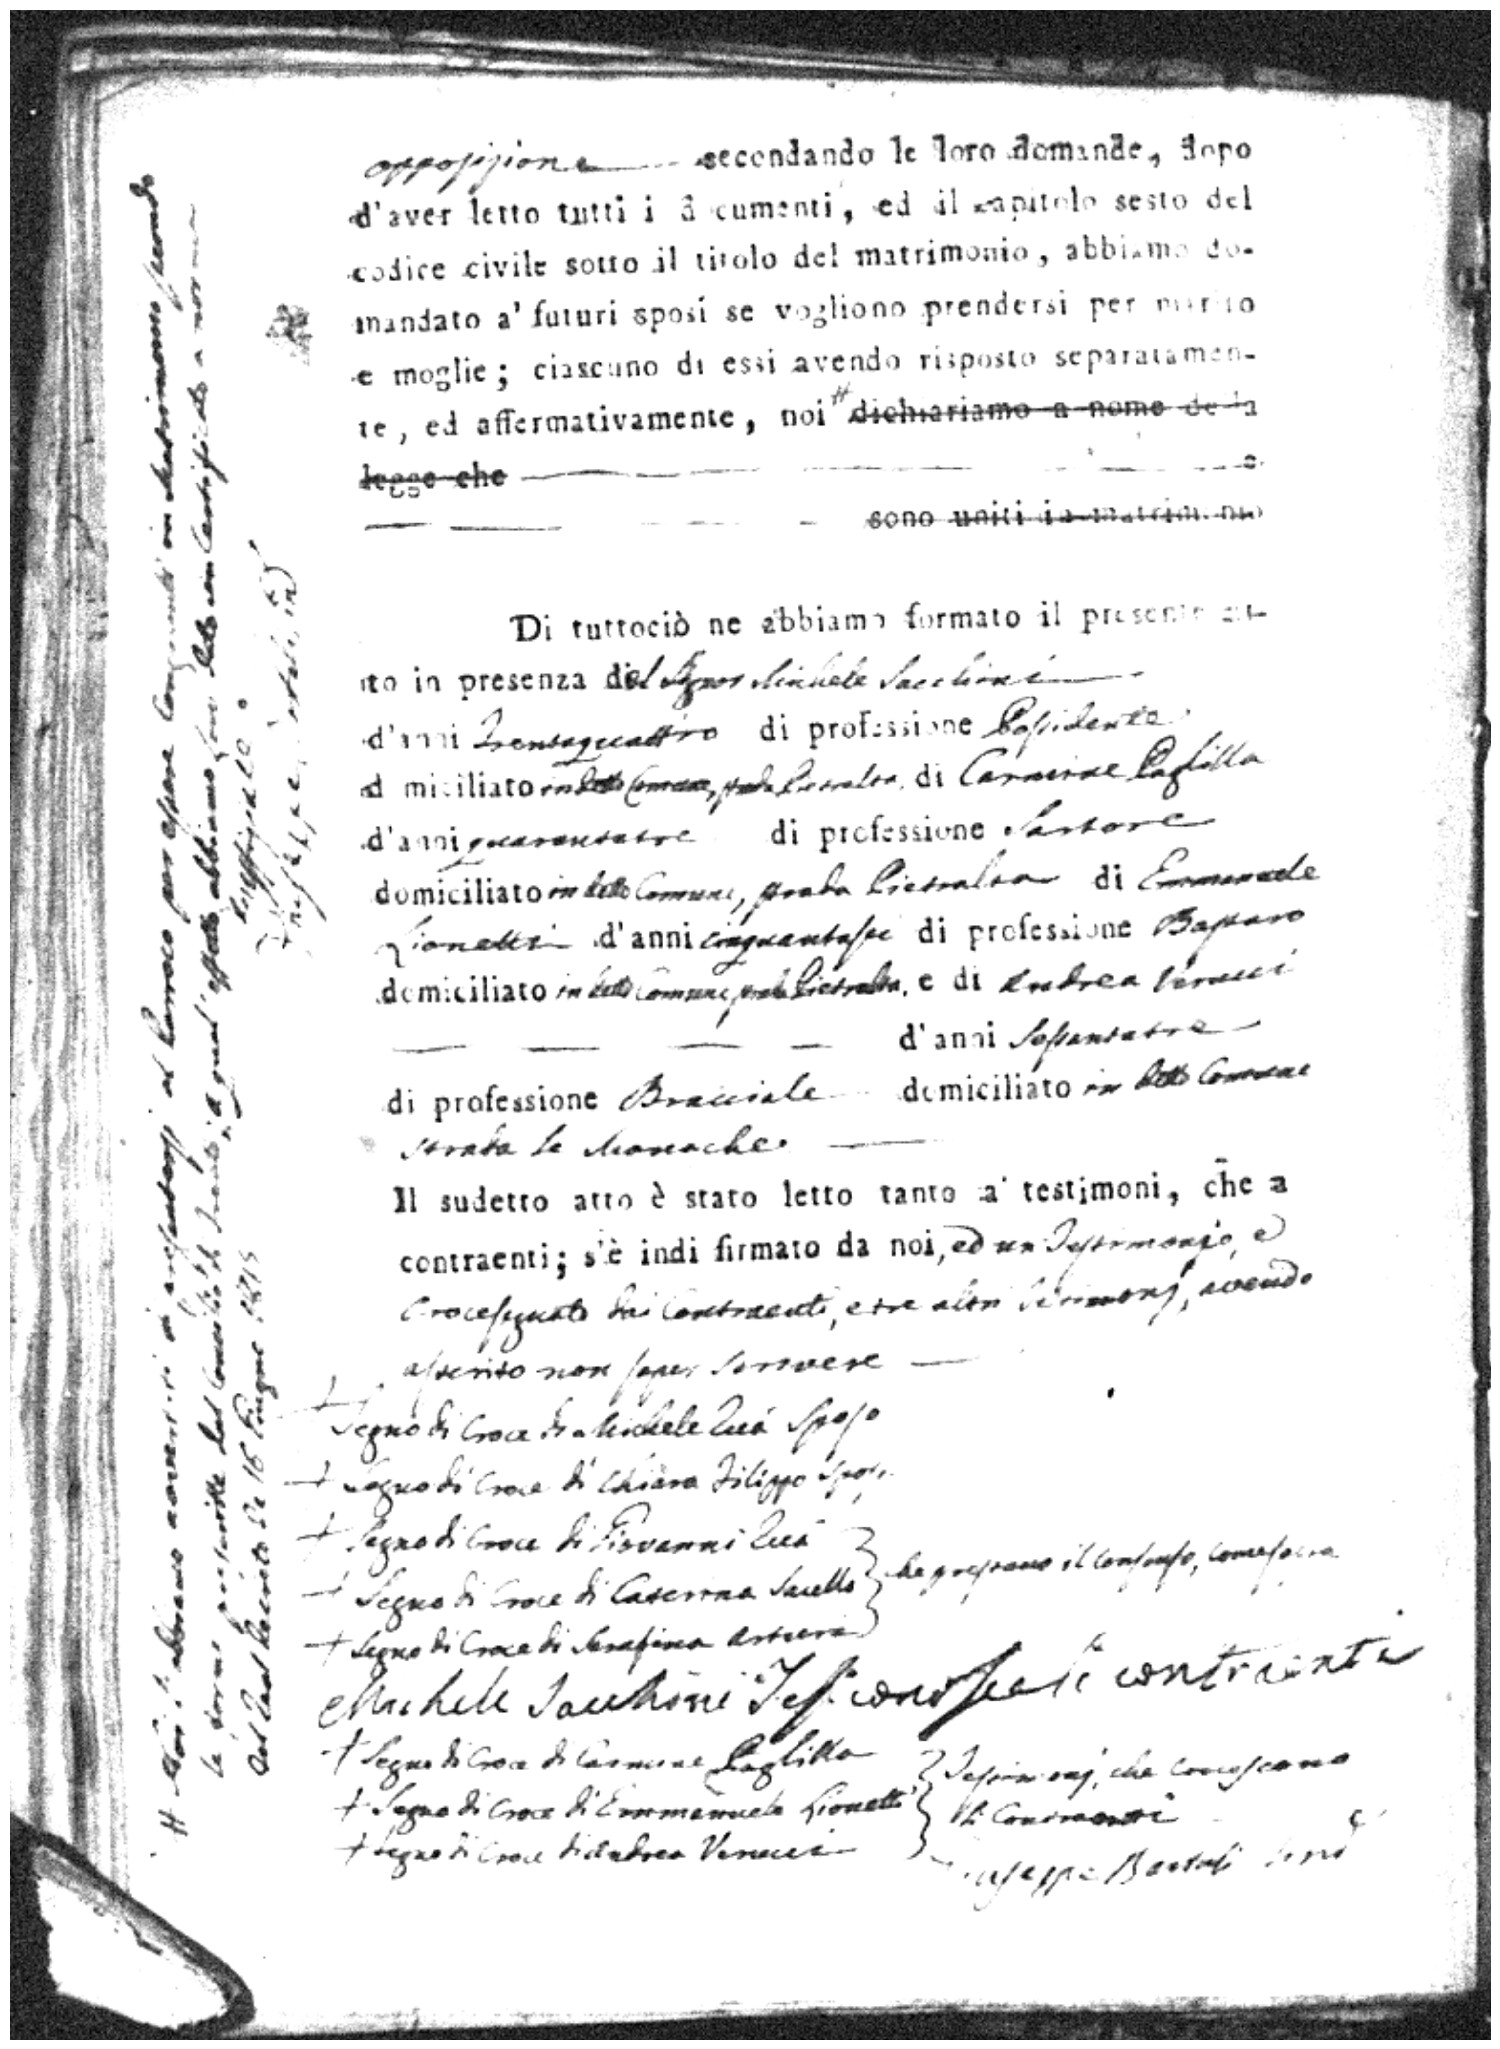 opposizione secondando le loro domande, dopo
d'aver letto tutti i d cumenti, ed il capitolo sesto del
codice civile sotto il titolo del matrimonio, abbiamo do-
mandato a' futuri sposi se vogliono prendersi per marito
e moglie; ciascuno di essi avendo risposto separatamen-
te, ed affermativamente, noi # dichiariamo a nome de la
legge che e
sono uniti in matrimonio
Di tuttociò ne abbiamo formato il presente at-
to in presenza del Signor Michele Sacchini
d'anni Trentaquattro di professione Possidente
d miciliato in detto Comune, strada Pietralta, di Carmine Paglilla
d'anni quarantatre di professione Sartore
domiciliato in detto Comune, strada Pietralta di Emmanuele
Lionetti d'anni cinquantasei di professione Bastaro
domiciliato in detto Comune strada Pietralta, e di Andrea Veracci
d'anni Sessantatre
di professione Bracciale domiciliato in detto Comune
strada le Monache.
Il sudetto atto è stato letto tanto a' testimoni, che a
contraenti; s'è indi firmato da noi, ed un Testimonio, e
Crocesegnato dai Contraenti, e tre altri Testimonj, avendo
asserito non saper scrivere
+ Segno di Croce di Michele Zuà Sposo
+ Segno di Croce di Chiara Filippo Sposa
+ Segno di Croce di Giovanni Zuà
+ Segno di Croce di Caterina Sacello
+ Segno di Croce di Serafina Artura
che prestano il consenso, come sopra
Michele Sacchini Tes. conosce li contraenti
+ Segno di Croce di Carmine Paglilla
+ Segno di Croce di Emmanuele Lionetti
+ Segno di Croce di Andrea Veracci
Testimonj, che conoscono
li Contraenti
Giuseppe Bartoli Sind
# Noi li abbiamo avvertiti di presentarsi al Parroco per essere Congiunti in Matrimonio secondo
le forme prescritte dal Concilio di Trento; a qual'effetto abbiamo loro dato un Certificato a norma
del Real Decreto de 16 Giugno 1815